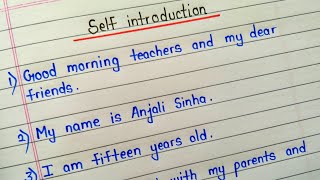 Self introduction
1) Good morning teachers and my dear
friends.
2) My name is Anjali Sinha.
3) I am fifteen years old.
with my parents and